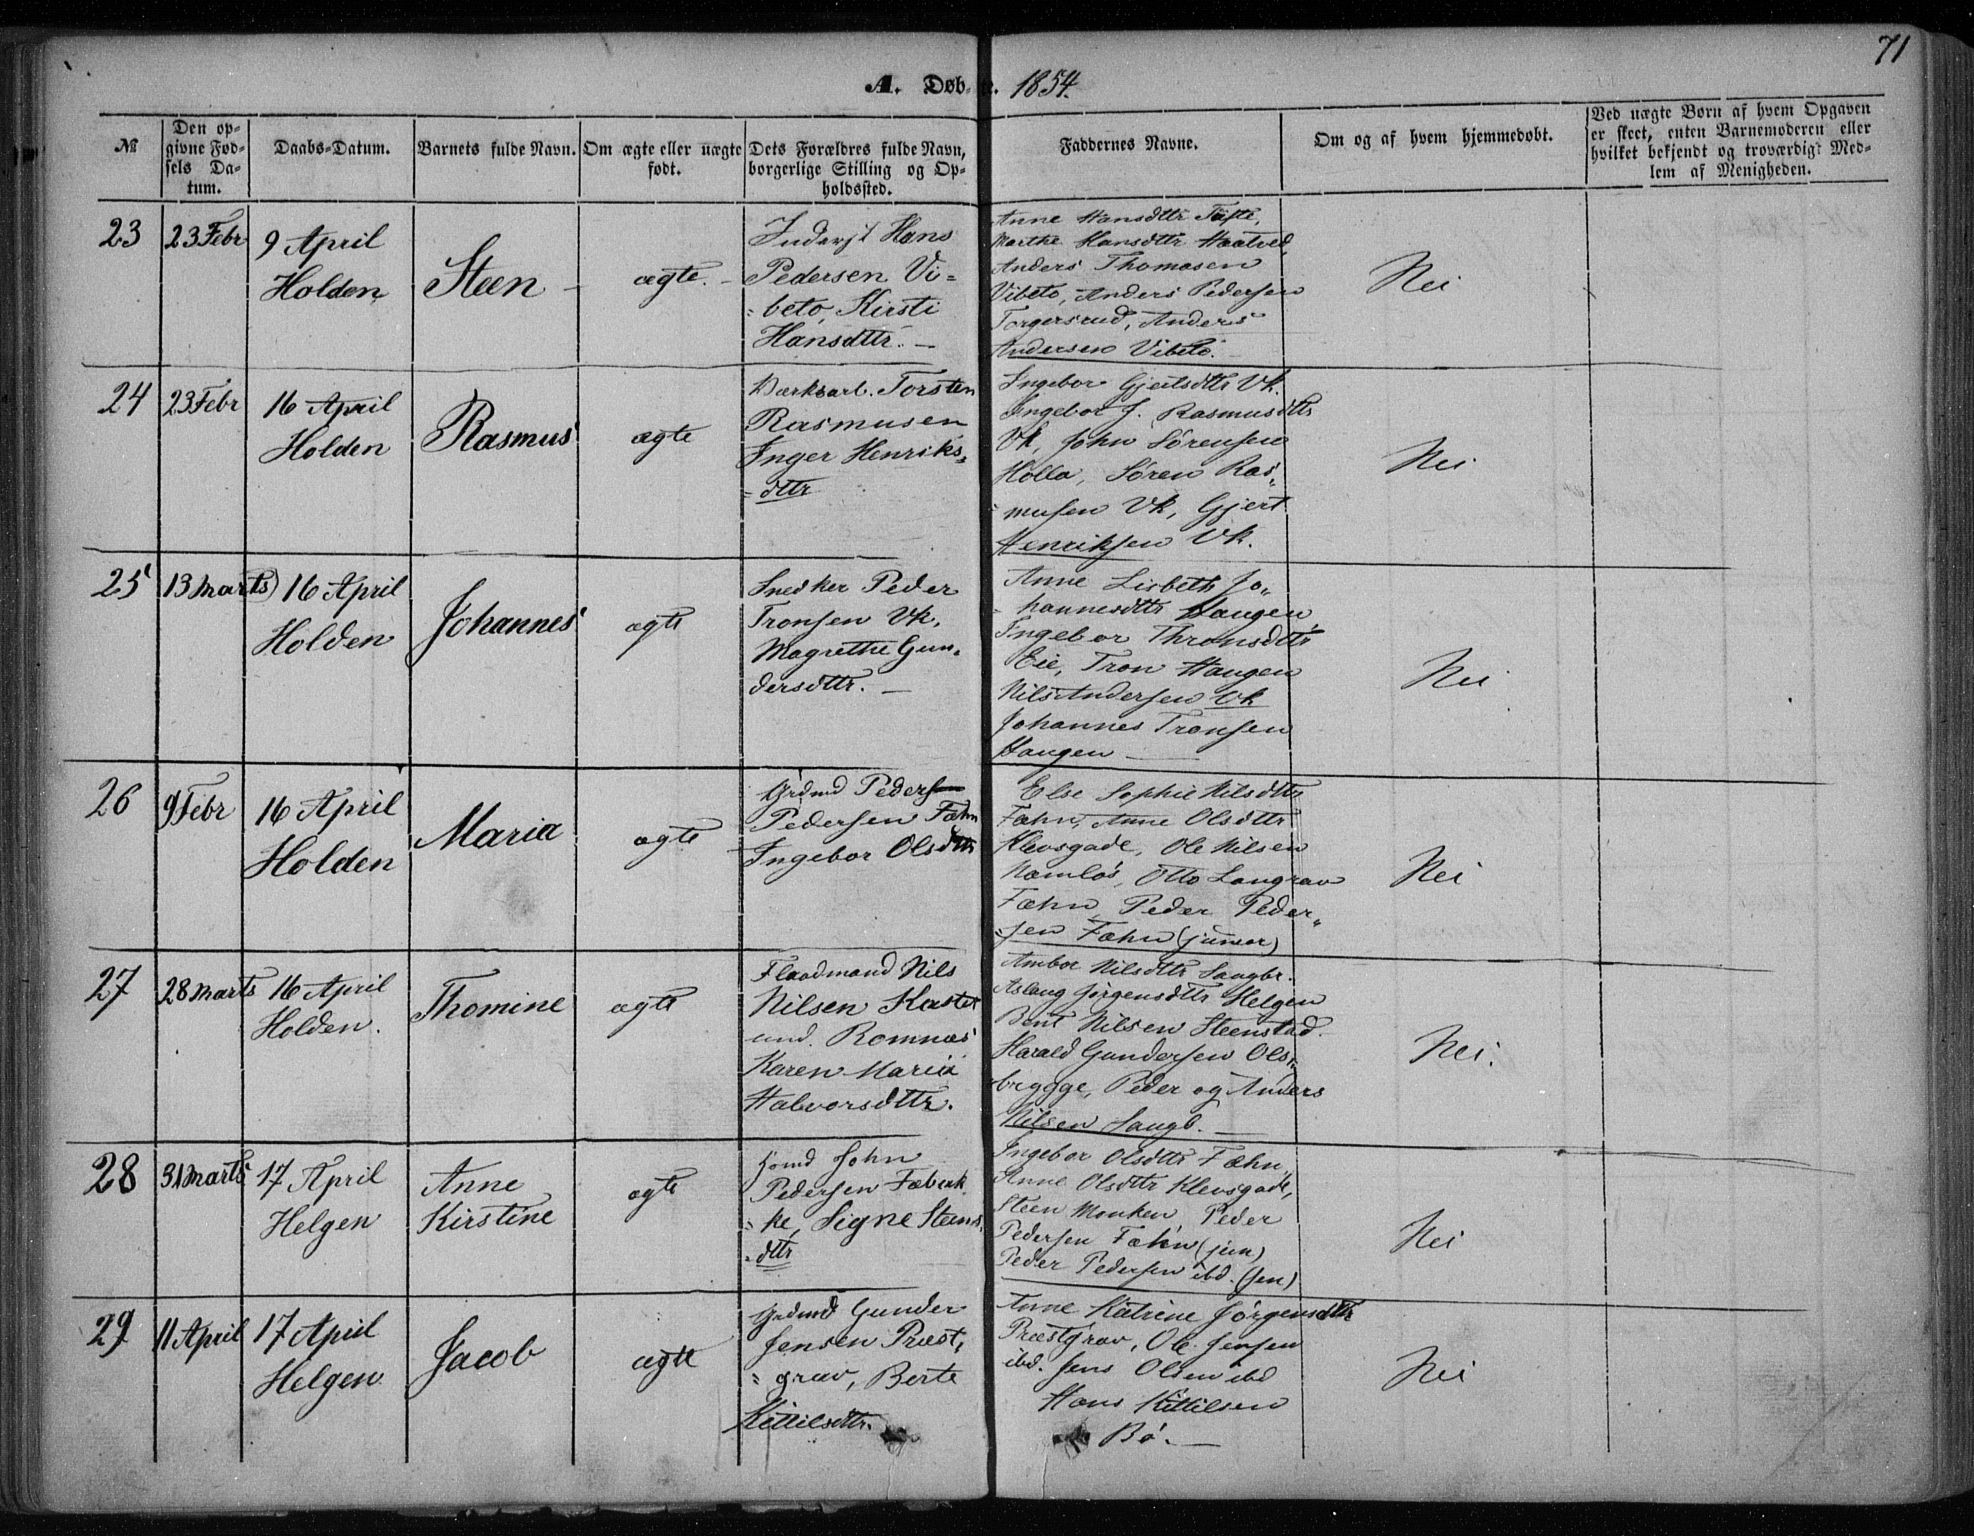 71
A. Døbte. 1854.
№
Den opgivne Fødsels Datum.
Daabs-Datum.
Barnets fulde Navn.
Om ægte eller uægte født.
Dets Forældres fulde Navn, borgerlige Stilling og Opholdssted.
Faddernes Navne.
Om og af hvem hjemmedøbt.
Ved uægte Børn af hvem Opgaven er skeet, enten Barnemoderen eller hvilket bekjendt og troværdigt Medlem af Menigheden.
23
23 Febr
9 April
Holden
Steen
ægte.
Hans
Pedersen Vi-
beto, Kirsti
Hansdttr.
Anne Hansdttr Tufte,
Marthe Hansdttr Haatved
Anders Thomasen
Vibeto, Anders Pedersen
Torgersrud, Anders
Andersen Vibeto.
Nei
24
23 Febr
16 April
Holden
Rasmus
ægte
Værksarb. Torsten
Rasmusen
Inger Henriks-
dttr
Ingebor Gjertsdttr Vk.
Ingebor J. Rasmusdttr
Vk, John Sørensen
Holla, Søren Ras-
musen Vk, Gjert
Henriksen Vk.
Nei
25
13 Marts
16 April
Holden
Johannes
ægte
Snedker Peder
Tronsen Vk,
Magrethe Gun-
dersdttr.
Anne Lisbeth Jo-
hannesdttr Haugen,
Ingebor Thronsdttr
Eie, Tron Haugen
Nils Andersen Vk
Johannes Tronsen
Haugen
Nei
26
9 Febr
16 April
Holden
Maria
ægte
Grdmd Peder
Pedersen Fæhn
Ingebor Olsdttr
Else Sophie Nilsdttr
Fæhn, Anne Olsdttr
Klevsgade, Ole Nilsen
Namløs, Otto Langrav
Fæhn, Peder Peder-
sen Fæhn (junior)
Nei
27
28 Marts
16 April
Holden.
Thomine
ægte
Flaadmand Nils
Nilsen Kastet
und. Romnæs
Karen Maria
Halvorsdttr.
Ambor Nilsdttr Saugbr.
Aslaug Jørgensdttr Helgen
Bent Nilsen Steenstad.
Harald Gundersen Ols-
brygge, Peder og Anders
Nilsen Saugb.
Nei.
28
31 Marts
17 April
Helgen
Anne
Kirstine
ægte
John
Pedersen Fæbrek-
ke, Signe Steens-
dttr
Ingebor Olsdttr Fæhn,
Anne Olsdttr Klevsgade,
Steen Monken Peder
Pedersen Fæhn (jun)
Peder Pedersen ibd. (sen)
Nei
29
11 April
17 April
Helgen
Jacob
ægte
Grdmd Gunder
Jensen Præst-
grav, Berte
Kittilsdttr.
Anne Katrine Jørgensdttr
Præstgrav, Ole Jensen
ibd. Jens Olsen ibd
Hans Kittilsen
Bø.
Nei